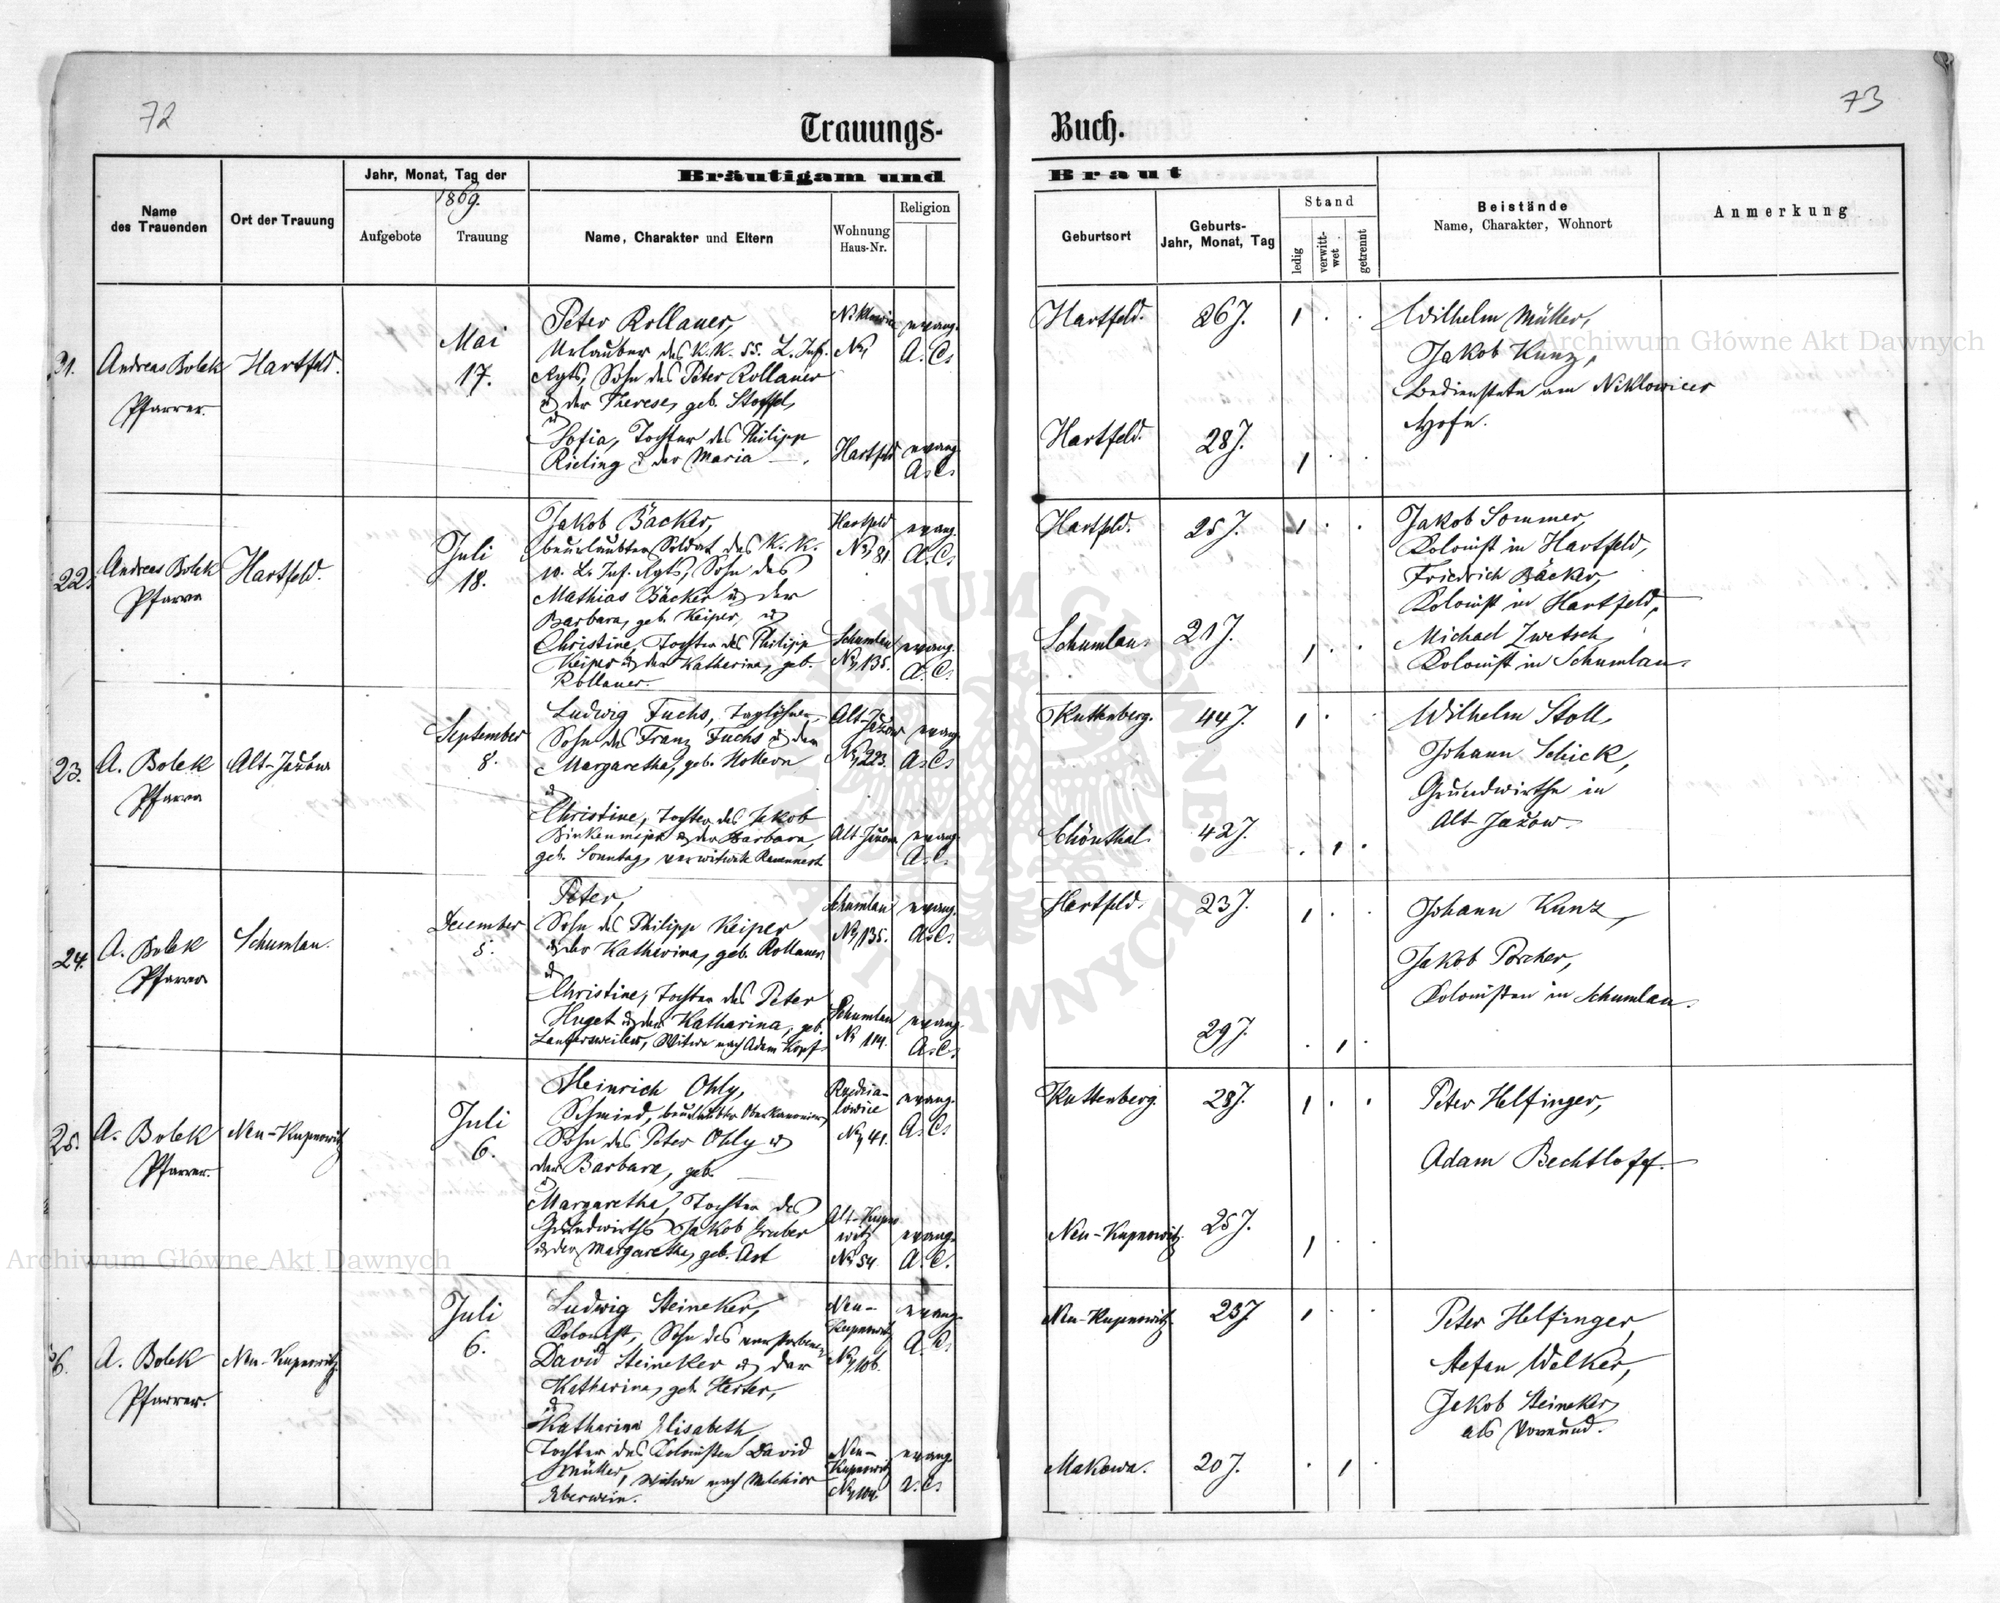 72
73
Trauungs-
Buch.
Name
des Trauenden
Ort der Trauung
Jahr, Monat, Tag der
1869.
Aufgebote
Trauung
Bräutigam und
Braut
Name, Charakter und Eltern
Wohnung
Haus-Nr.
Religion
Geburtsort
Geburts-
Jahr, Monat, Tag
Stand
ledig
verwitt-
wet
getrennt
Beistände
Name, Charakter, Wohnort
Anmerkung
Andreas Bolek
Pfarrer.
Hartfeld.
Mai
17.
Peter Rollauer,
Urlauber des K. K. 55. L. Inf.
Rgts, Sohn des Peter Rollauer
u der Therese, geb. Stoffel,
u
Sofia, Tochter des Philipp
Rieling u der Maria —.
Niklowice
No
evang.
A. C.
Hartfeld
evang.
A. C.
Hartfeld.
26 J.
Hartfeld.
28 J.
Wilhelm Müller,
Jakob Kunz,
Bedienstete am Niklowicer
Hofe.
22.
Andreas Bolek
Pfarrer
Hartfeld.
Juli
18.
Jakob Bäcker,
beurlaubter Soldat des K. K.
10. L. Inf. Rgts, Sohn des
Mathias Bäcker u der
Barbara, geb. Keiper, u
Christine, Tochter des Philipp
Keiper u der Katharina, geb.
Rollauer.
Hartfeld
No 81
evang.
A. C.
Schumlau
No 135.
evang.
A. C.
Hartfeld.
25 J.
Schumlau.
21 J.
Jakob Sommer,
Kolonist in Hartfeld,
Friedrich Bäcker,
Kolonist in Hartfeld,
Michael Zwetsch,
Kolonist in Schumlau.
23.
A. Bolek
Pfarrer
Alt-Jažow
September
8.
Ludwig Fuchs, Taglöhner,
Sohn des Franz Fuchs u der
Margaretha, geb.
u
Christine, Tochter des Jakob
u der Barbara,
geb. Sonntag, verwitwete
Alt-Jažow
No 223.
evang.
A. C.
Alt-Jažow
evang.
A. C.
Kuttenberg.
44 J.
Schönthal.
42 J.
Wilhelm Stoll,
Johann Schick,
Grundwirthe in
Alt-Jažow.
24.
A. Bolek
Pfarrer
Schumlau.
December
5.
Peter,
Sohn des Philipp Keiper
u der Katharina, geb. Rollauer
u
Christine, Tochter des Peter
Huget u der Katharina, geb.
Lautersweiler, Witwe nach Adam Kopf.
Schumlau
No 135.
evang.
A. C.
Schumlau
No 114.
evang.
A. C.
Hartfeld.
23 J.
29 J.
Johann Kunz,
Jakob Porcher,
Kolonisten in Schumlau.
25.
A. Bolek
Pfarrer.
Neu-Kupnowitz
Juli
6.
Heinrich Ohly,
Schmied, beurlaubter Oberkanonier,
Sohn des Peter Ohly u
der Barbara, geb. —
u
Margaretha, Tochter des
Grundwirths Jakob Gruber
u der Margaretha, geb. Ast
lowice
No 41.
evang.
A. C.
Alt-Kupno
witz
No 54
evang.
A. C.
Kuttenberg.
28 J.
Neu-Kupnowitz.
25 J.
Peter Helfinger,
Adam Bechtloff.
A. Bolek
Pfarrer.
Neu-Kupnowitz.
Juli
6.
Ludwig Steineker,
Kolonist, Sohn des verstorbenen
David Steineker u der
Katharina, geb. Herter,
u
Katharina Elisabeth,
Tochter des Kolonisten David
Müller, Witwe nach Melchior
Eberwein.
Neu-
Kupnowitz
No 106.
evang.
A. C.
Neu-
Kupnowitz
No 104.
evang.
A. C.
Neu-Kupnowitz.
23 J.
Makowa.
20 J.
Peter Helfinger,
Stefan Welker,
Jakob Steineker,
als Vormund.
Archiwum Główne Akt Dawnych
Archiwum Główne Akt Dawnych
ARCHIWUM GŁÓWNE AKT DAWNYCH